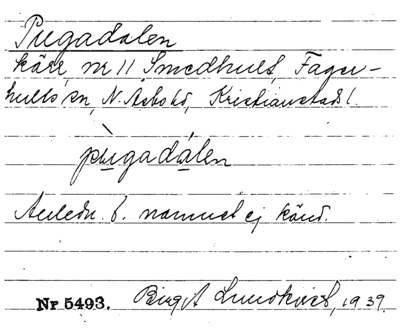 Pugadalen
kärr nr 11 Smedhult, Fager-
hults sn, N. Åsbo hd, Kristianstads l.
pùgadálen
Anledn. t. namnet ej känd.
Nr 5493. Birgit Lundkvist, 1939.